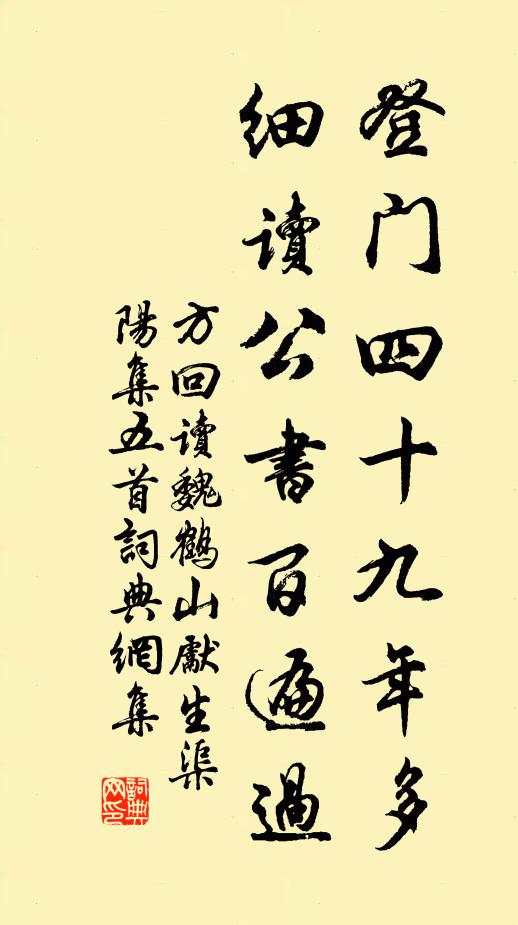 登门四十九年多
细读公书百遍過
方回读魏鹤山獻生渠
陽集五首詞典網集
詞典網印